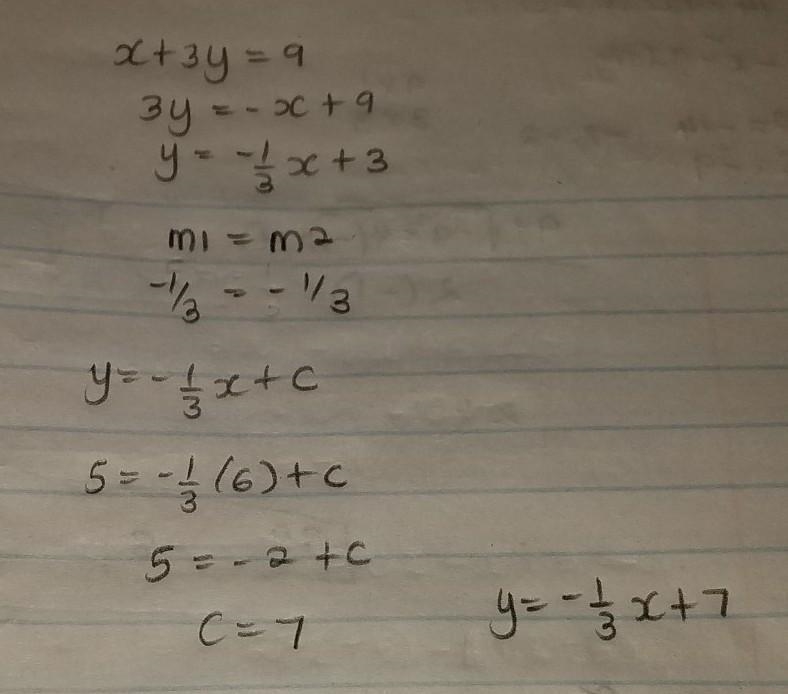 x+3y = 9
3y = -x + 9
y = -1/3 x + 3
m1 = m2
-1/3 = -1/3
y = -1/3 x + c
5 = -1/3 (6) + c
5 = -2 + c
c = 7
y = -1/3 x + 7